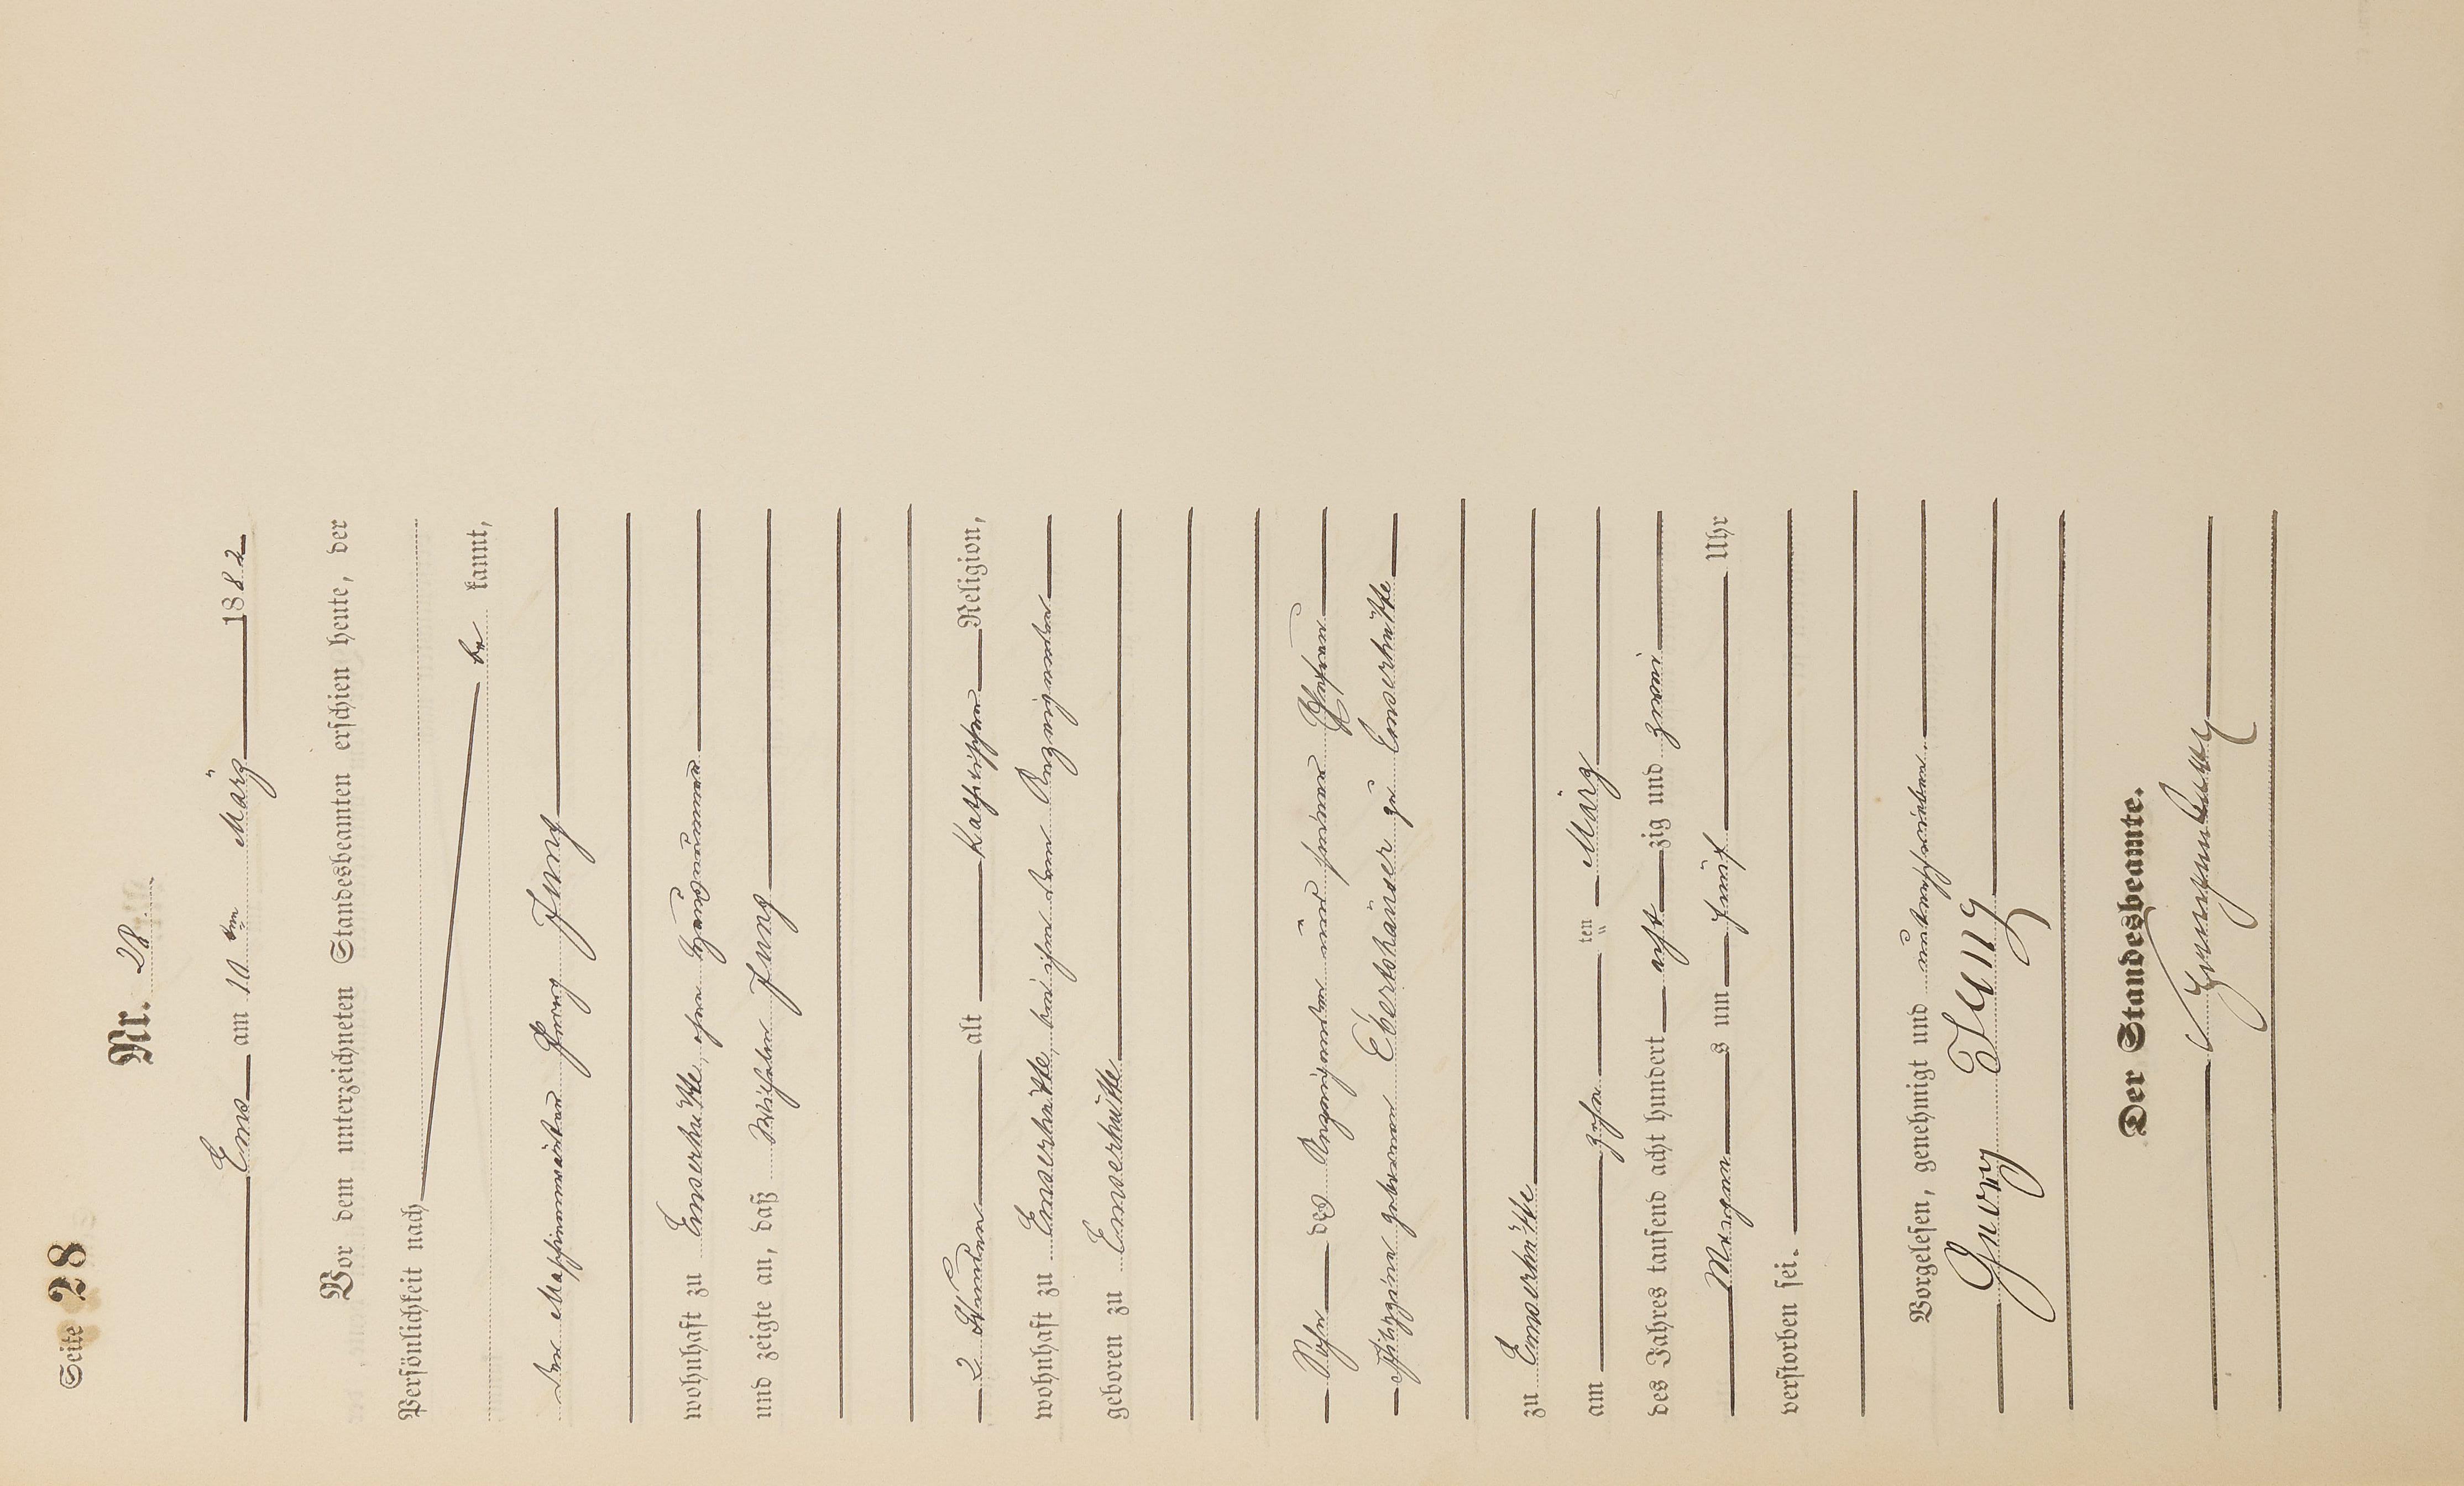 Seite 28
Nr. 28.
Ems am 10ten März 1882
Vor dem unterzeichneten Standesbeamten erschien heute, der
Persönlichkeit nach
be kannt,
der Maschinenwärter Georg Jung
wohnhaft zu Emserhütte, eben
und zeigte an, daß Wilhelm Jung
2 Stunden alt Katholischer Religion,
wohnhaft zu Emserhütte, bei ihm dem Anzeigenden
geboren zu Emserhütte
Sohn des Anzeigenden und seiner Ehefrau
Philippine geborenen Ebertshäuser zu Emserhütte
zu Emserhütte
am zehn ten März
des Jahres tausend acht hundert acht zig und zwei
Morgen s um fünf Uhr
verstorben sei.
Vorgelesen, genehmigt und unterschrieben.
Georg Jung
Der Standesbeamte.